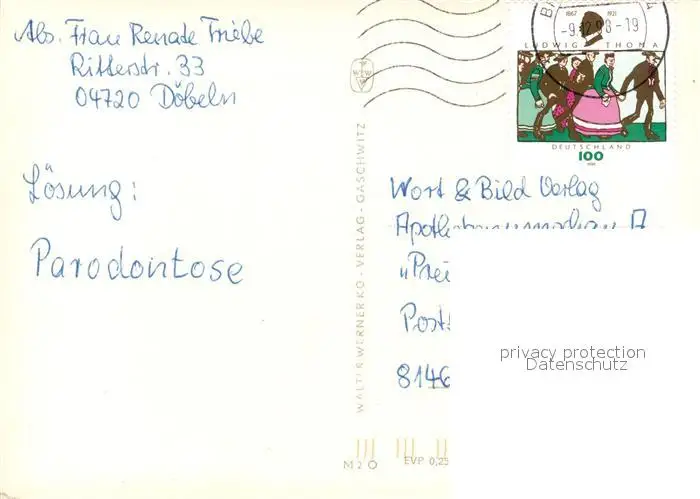 Abs. Frau Renate Triebe
Ritterstr. 33
04720 Döbeln
Lösung:
Parodontose
WALTER WERNER KO - VERLAG - GASCHWITZ
M 2 O
EVP 0,25
1867 1921
-9.12.96-19
LUDWIG THOMA
DEUTSCHLAND
100
Wort & Bild Verlag
"Prei
Post
8146
privacy protection
Datenschutz